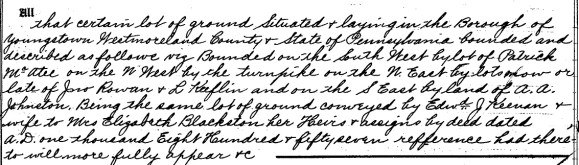 All
that certain lot of ground Situated & laying in the Borough of
Youngstown Westmoreland County & State of Pennsylvania bounded and
described as follows viz Bounded on the South West by lot of Patrick
McAtee on the N West by the turnpike on the N. East by lots now or
late of Jno Rowan & L Keflin and on the S East by land of A. A.
Johnston. Being the same lot of ground conveyed by Edwd J Keenan &
wife to Mrs Elizabeth Blackston her Heirs & assigns by deed dated
A.D. one thousand Eight Hundred & fifty seven refference had there
to will more fully appear &c